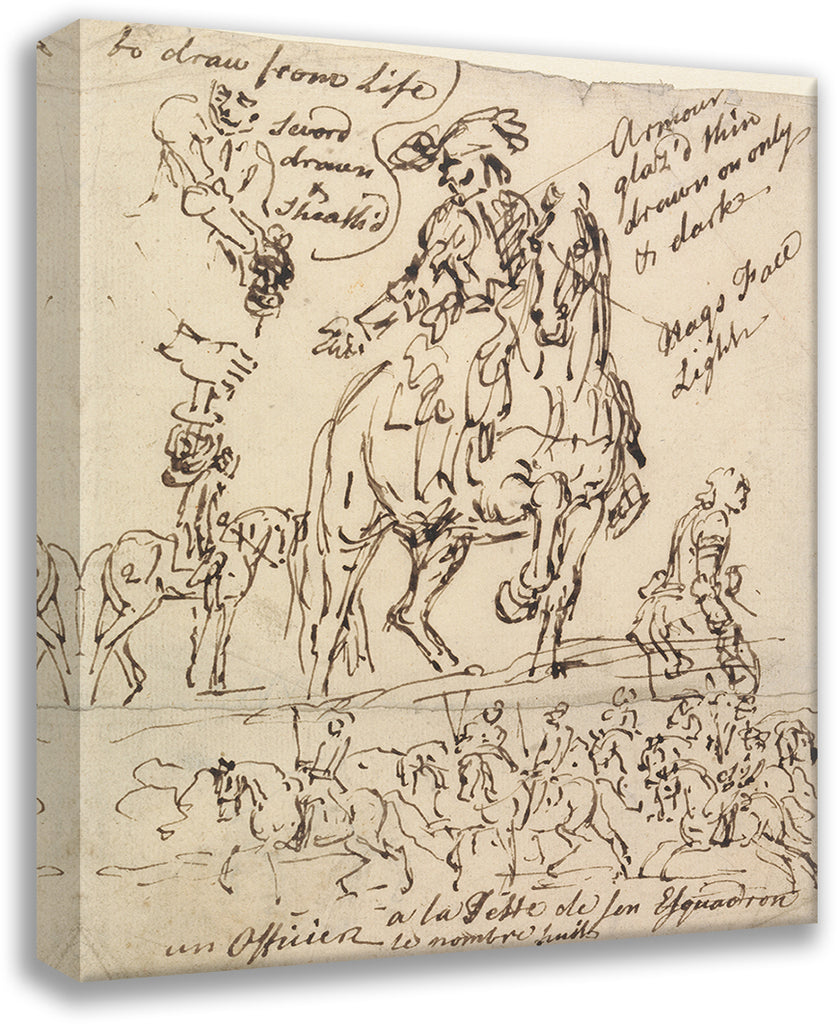 to draw from Life
Sword
drawn
&
Sheath'd
Armour
glaz'd thin
drawn on only
& dark
Nags Face
Light
2
un Officier a la Tette de son Esquadron
le nombre huit